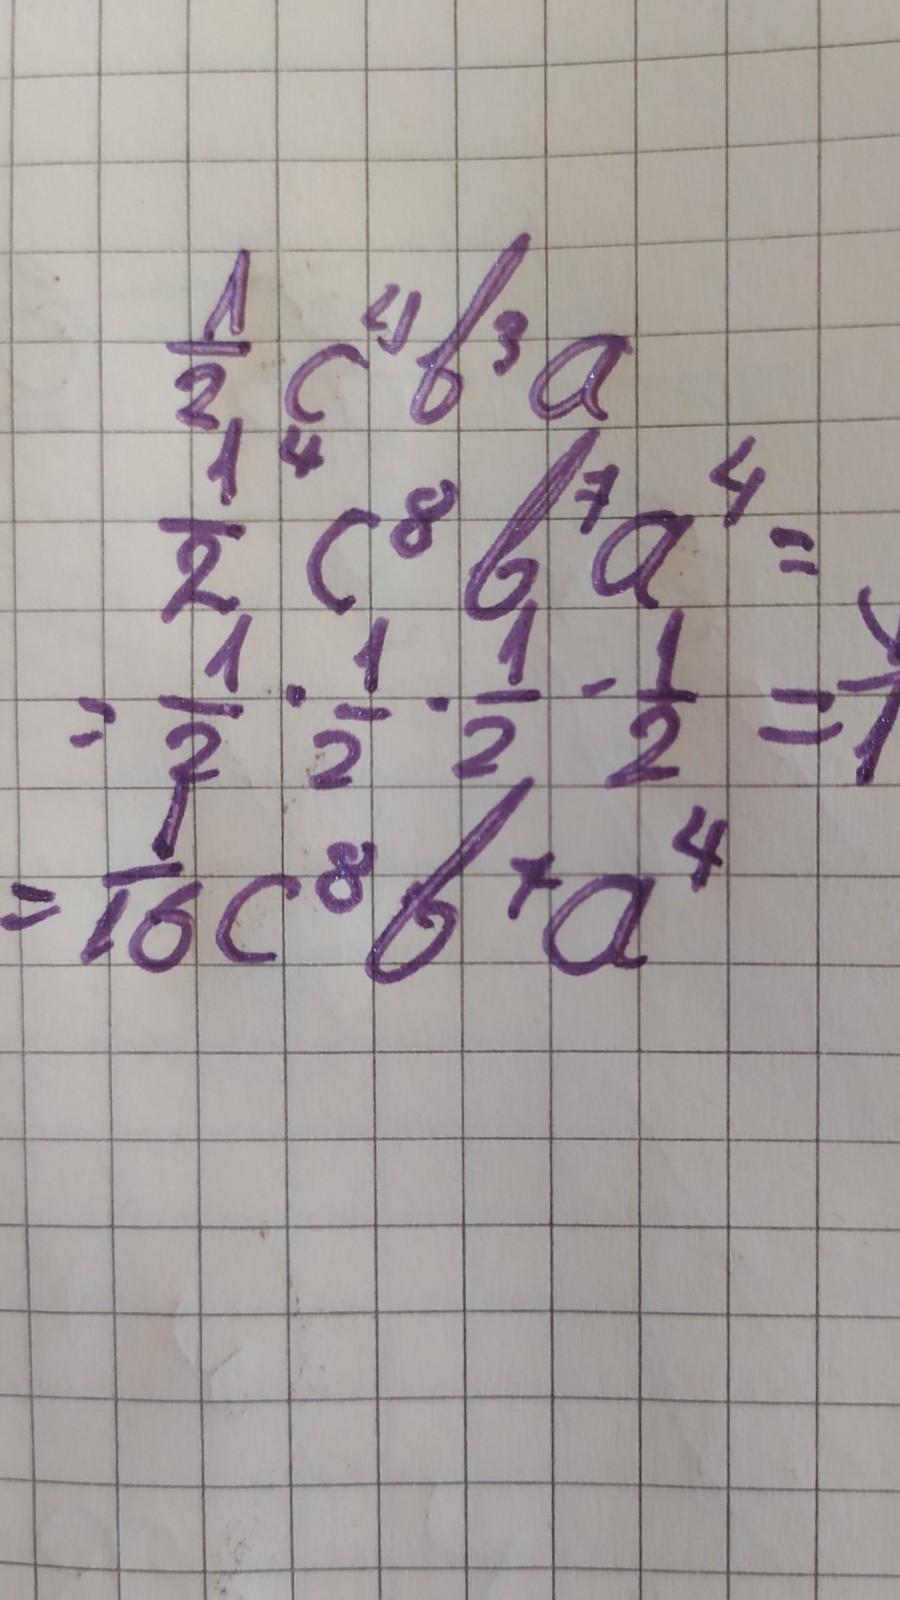 1/2 c⁴ b³ a
1/2 ⁴ c⁸ b⁷ a⁴ =
= 1/2 · 1/2 · 1/2 · 1/2 =
= 1/16 c⁸ b⁷ a⁴